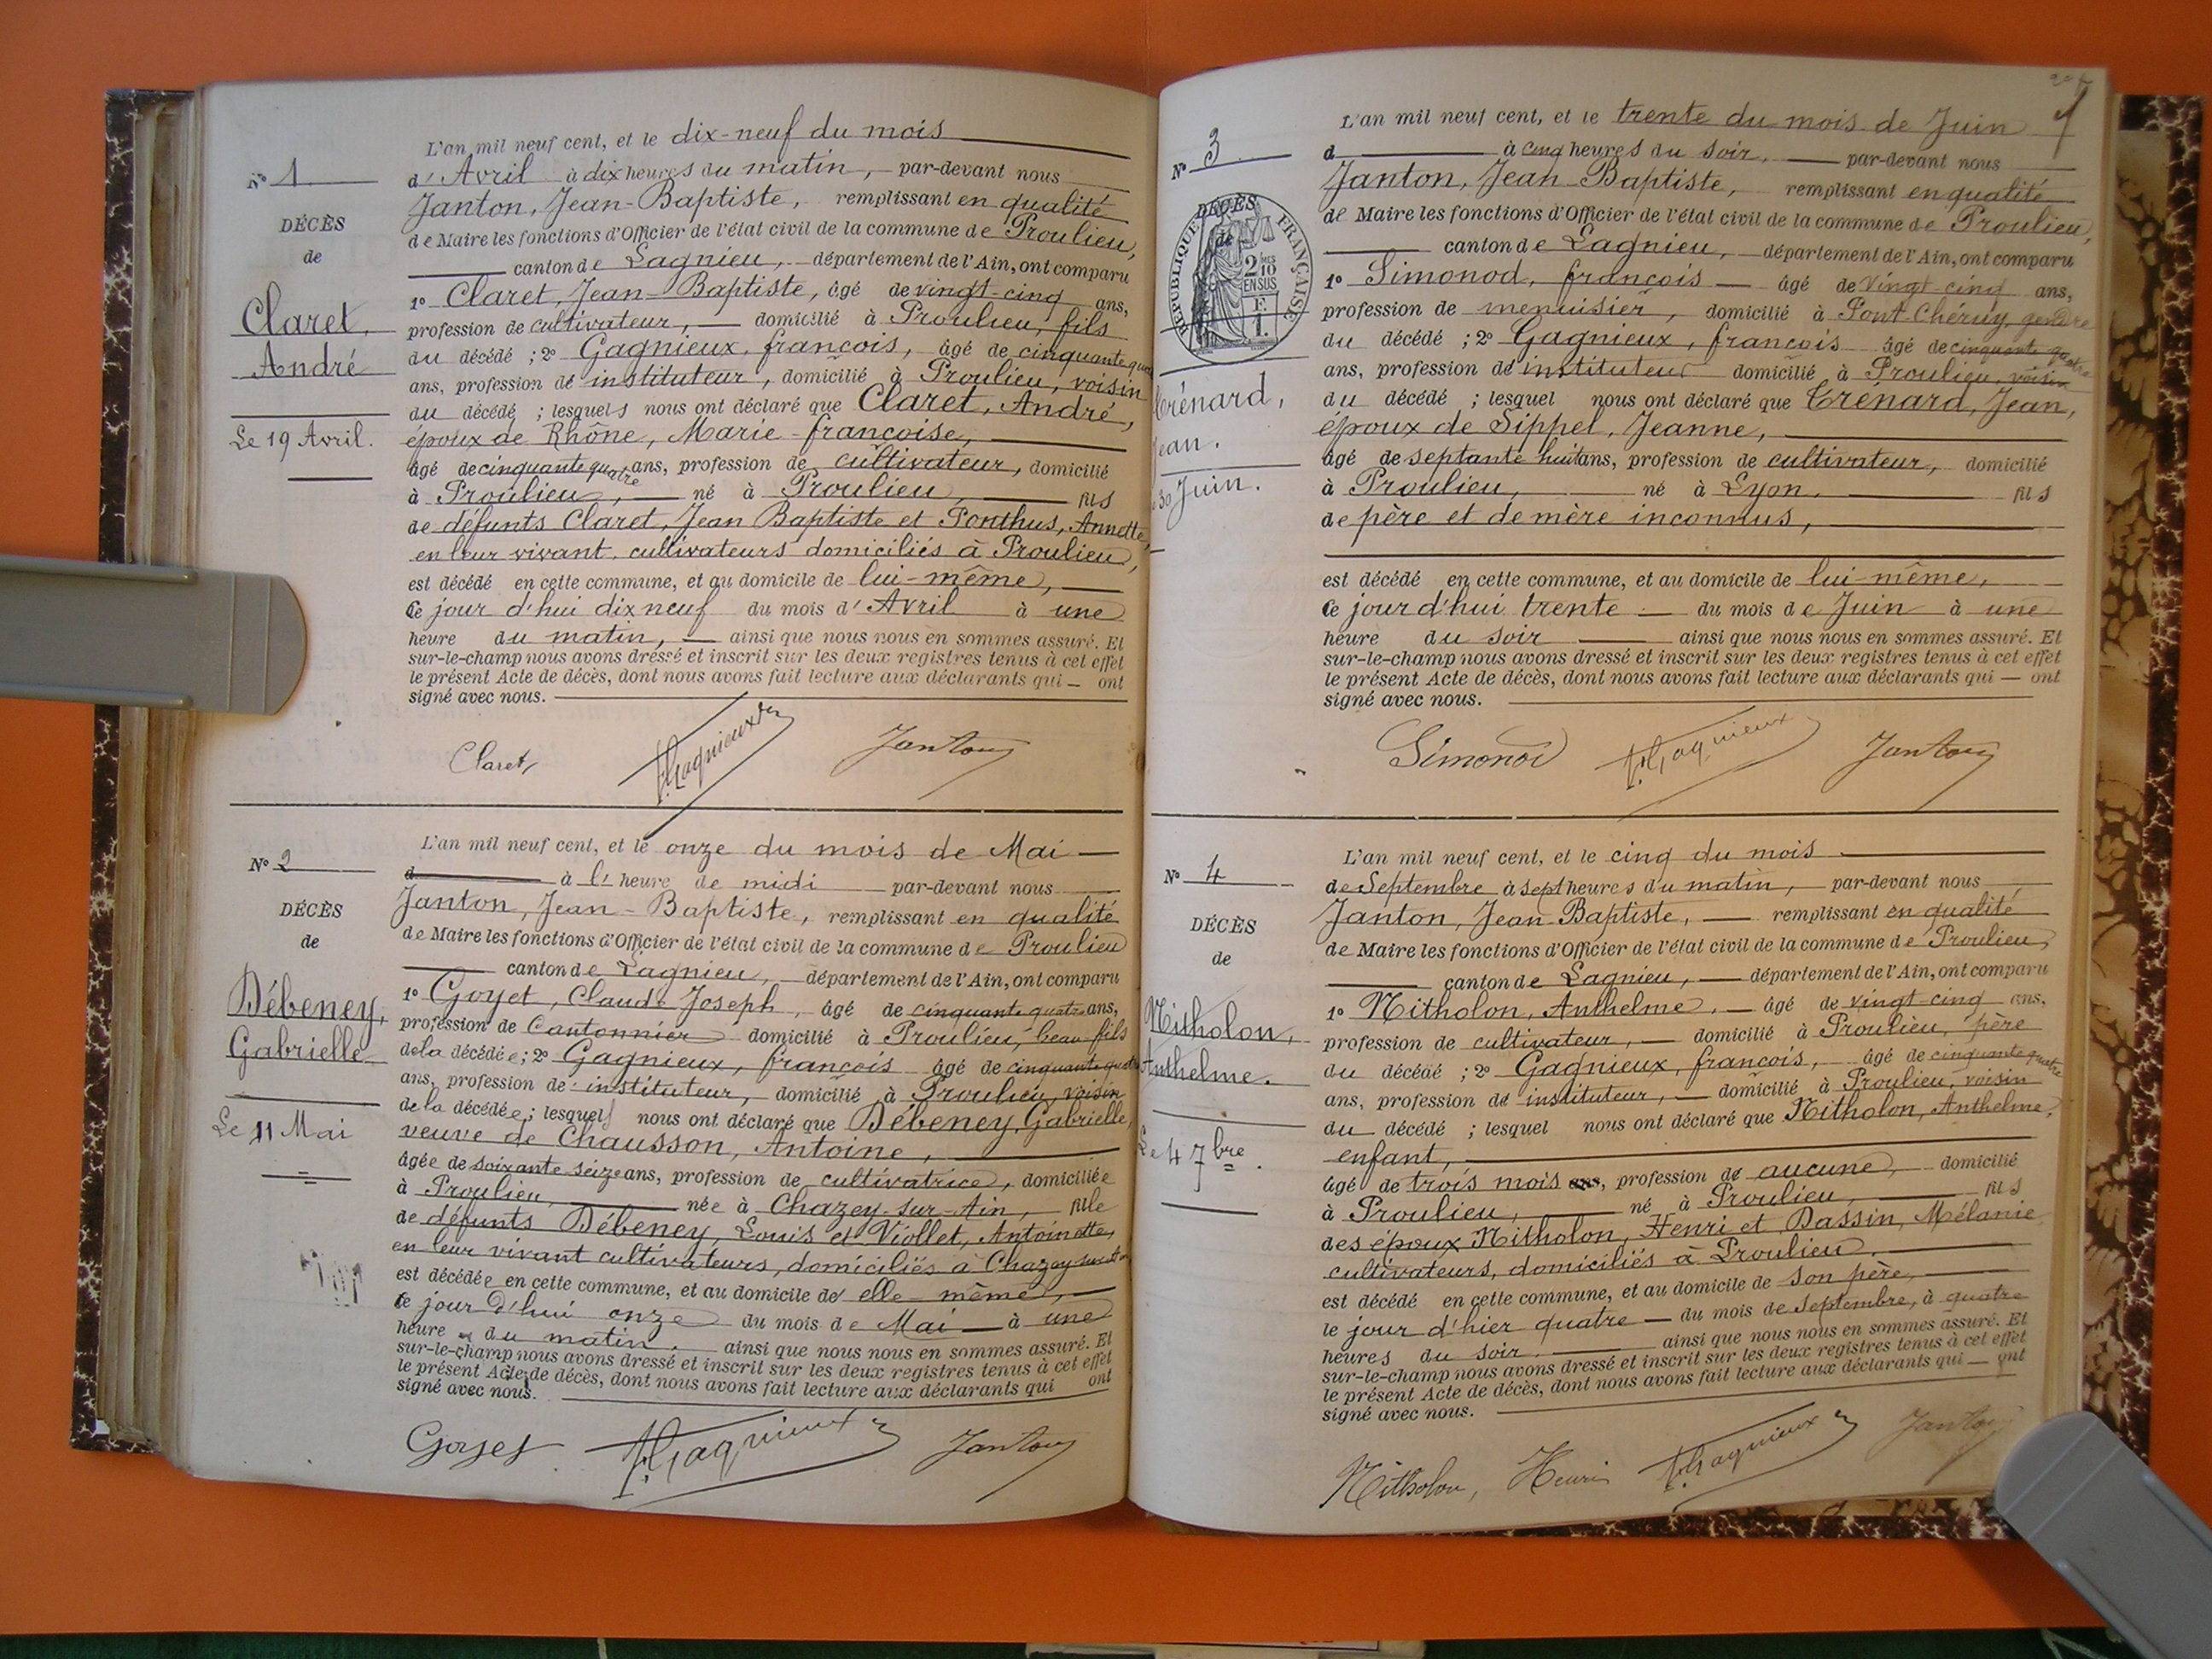 N° 1
DÉCÈS
de
Claret,
André
Le 19 Avril.
L'an mil neuf cent, et le dix-neuf du mois
d'Avril à dix heures du matin, par-devant nous
Janton, Jean-Baptiste, remplissant en qualité
de Maire les fonctions d'Officier de l'état civil de la commune de Proulieu,
canton de Lagnieu, département de l'Ain, ont comparu
1° Claret, Jean-Baptiste, âgé de vingt-cinq ans,
profession de cultivateur, domicilié à Proulieu, fils
du décédé ; 2° Gagnieux, françois, âgé de cinquante quatre
ans, profession de instituteur, domicilié à Proulieu, voisin
du décédé ; lesquels nous ont déclaré que Claret, André,
époux de Rhône, Marie-françoise,
âgé de cinquante quatre ans, profession de cultivateur, domicilié
à Proulieu, né à Proulieu, fils
de défunts Claret, Jean Baptiste et Ponthus, Annette,
en leur vivant, cultivateurs domiciliés à Proulieu,
est décédé en cette commune, et au domicile de lui-même,
Ce jour d'hui dix neuf du mois d'Avril à une
heure du matin, ainsi que nous nous en sommes assuré. Et
sur-le-champ nous avons dressé et inscrit sur les deux registres tenus à cet effet
le présent Acte de décès, dont nous avons fait lecture aux déclarants qui ont
signé avec nous.
Claret, f. Gagnieux Janton
N° 2
DÉCÈS
de
Débeney,
Gabrielle
Le 11 Mai
L'an mil neuf cent, et le onze du mois de Mai
d à l'heure de midi par-devant nous
Janton, Jean-Baptiste, remplissant en qualité
de Maire les fonctions d'Officier de l'état civil de la commune de Proulieu
canton de Lagnieu, département de l'Ain, ont comparu
1° Goyet, Claude Joseph, âgé de cinquante quatre ans,
profession de Cantonnier domicilié à Proulieu, beau-fils
de la décédée ; 2° Gagnieux, françois âgé de cinquante quatre
ans, profession de instituteur, domicilié à Proulieu, voisin
de la décédée ; lesquels nous ont déclaré que Débeney, Gabrielle,
veuve de Chausson, Antoine,
âgée de soixante seize ans, profession de cultivatrice, domiciliée
à Proulieu, née à Chazey-sur-Ain, fille
de défunts Débeney, Louis et Viollet, Antoinette,
en leur vivant cultivateurs, domiciliés à Chazey sur Ain
est décédée en cette commune, et au domicile de elle-même,
Ce jour d'hui onze du mois de Mai à une
heure du matin, ainsi que nous nous en sommes assuré. Et
sur-le-champ nous avons dressé et inscrit sur les deux registres tenus à cet effet
le présent Acte de décès, dont nous avons fait lecture aux déclarants qui ont
signé avec nous.
Goyet f. Gagnieux Janton
N° 3
DÉCÈS
de
RÉPUBLIQUE FRANÇAISE
2/10
EN SUS
F.
1.
Crénard,
Jean.
30 Juin.
L'an mil neuf cent, et le trente du mois de Juin
d à cinq heures du soir, par-devant nous
Janton, Jean-Baptiste, remplissant en qualité
de Maire les fonctions d'Officier de l'état civil de la commune de Proulieu,
canton de Lagnieu, département de l'Ain, ont comparu
1° Simonod, françois âgé de Vingt-cinq ans,
profession de menuisier, domicilié à Pont-Chéruy, gendre
du décédé ; 2° Gagnieux, françois âgé de cinquante quatre
ans, profession de instituteur domicilié à Proulieu, voisin
du décédé ; lesquel nous ont déclaré que Crénard, Jean,
époux de Sippel, Jeanne,
âgé de septante huit ans, profession de cultivateur, domicilié
à Proulieu, né à Lyon, fils
de père et de mère inconnus,
est décédé en cette commune, et au domicile de lui-même,
Ce jour d'hui trente du mois de Juin à une
heure du soir ainsi que nous nous en sommes assuré. Et
sur-le-champ nous avons dressé et inscrit sur les deux registres tenus à cet effet
le présent Acte de décès, dont nous avons fait lecture aux déclarants qui ont
signé avec nous.
Simonod f. Gagnieux Janton
N° 4
DÉCÈS
de
Nitholon,
Anthelme.
Le 4 7bre.
L'an mil neuf cent, et le cinq du mois
de Septembre à sept heures du matin, par-devant nous
Janton, Jean-Baptiste, remplissant en qualité
de Maire les fonctions d'Officier de l'état civil de la commune de Proulieu,
canton de Lagnieu, département de l'Ain, ont comparu
1° Nitholon, Anthelme, âgé de vingt-cinq ans,
profession de cultivateur, domicilié à Proulieu, père
du décédé ; 2° Gagnieux, françois, âgé de cinquante quatre
ans, profession de instituteur, domicilié à Proulieu, voisin
du décédé ; lesquel nous ont déclaré que Nitholon, Anthelme,
enfant,
âgé de trois mois ans, profession de aucune, domicilié
à Proulieu, né à Proulieu, fils
des époux Nitholon, Henri et Dassin, Mélanie
cultivateurs, domiciliés à Proulieu,
est décédé en cette commune, et au domicile de son père,
le jour d'hier quatre du mois de Septembre, à quatre
heures du soir, ainsi que nous nous en sommes assuré. Et
sur-le-champ nous avons dressé et inscrit sur les deux registres tenus à cet effet
le présent Acte de décès, dont nous avons fait lecture aux déclarants qui ont
signé avec nous.
Nitholon, Henri f. Gagnieux Janton